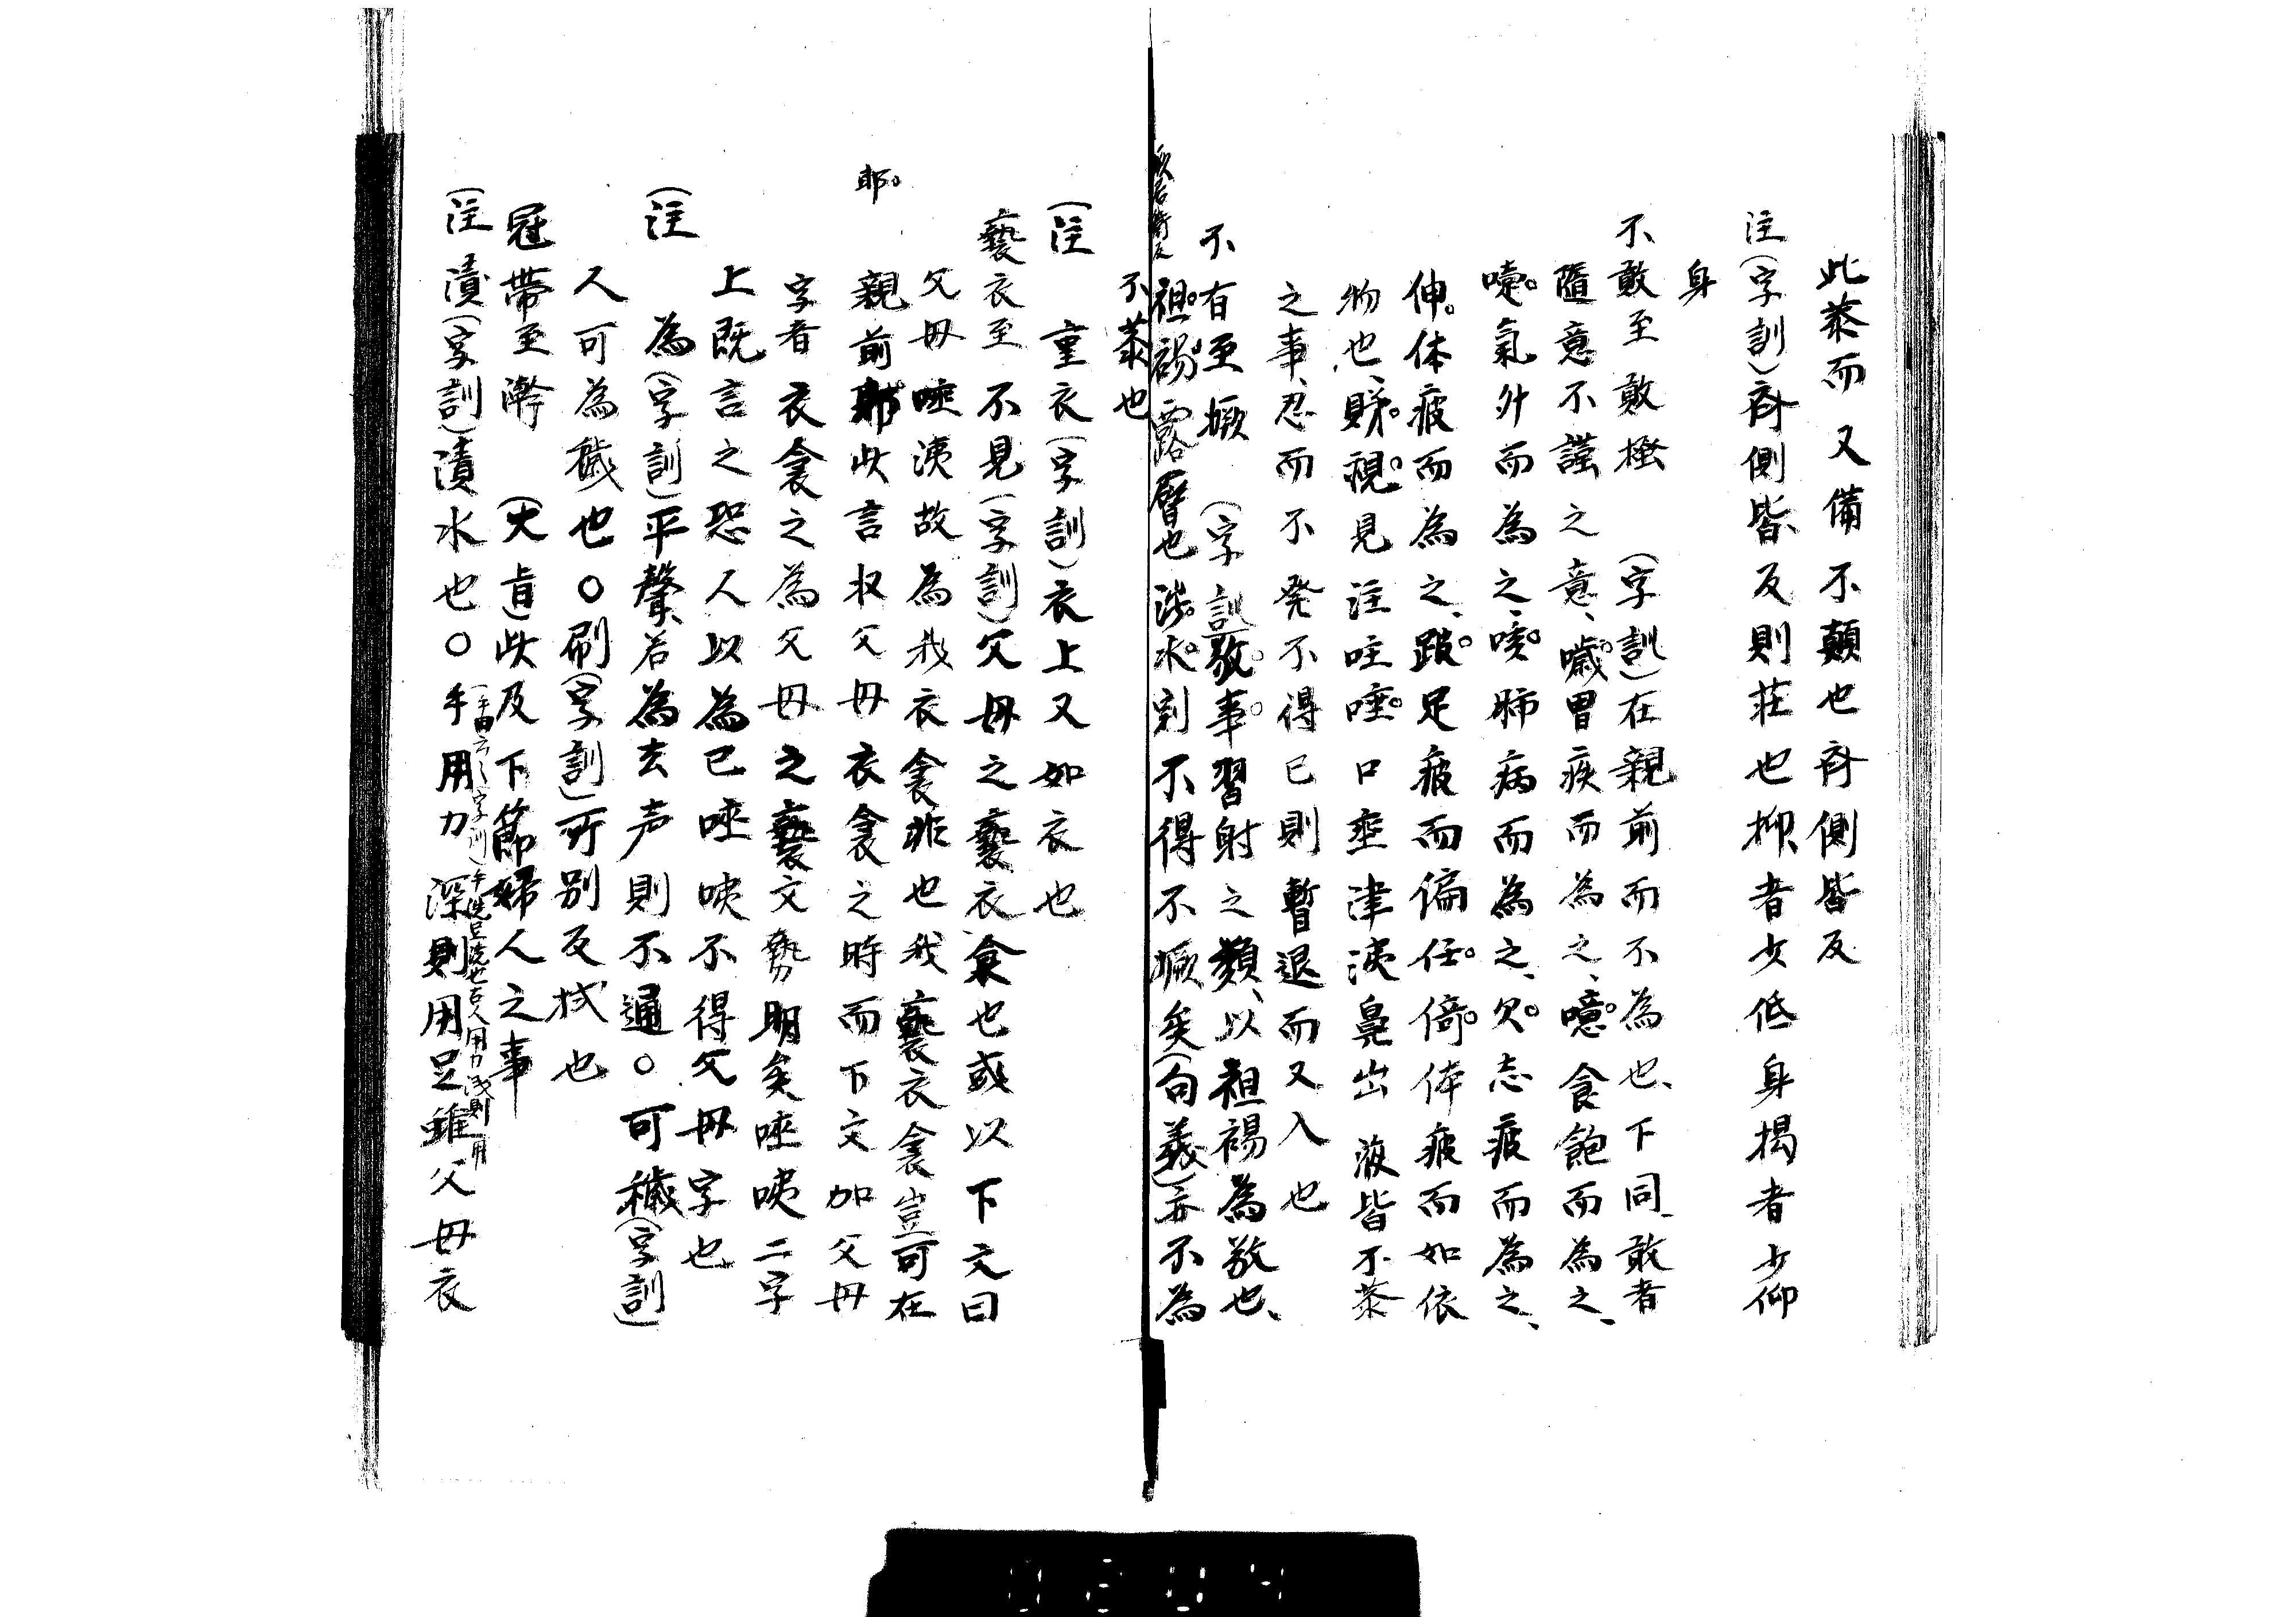 此恭而又備不顛也斉側皆反
注(字訓)斉側皆、反則荘也抑、者少低身揭者少仰
身
不敢至敢搔 (字訓)在親前而不為也、下同、敢者
隨意不謹之意、噦。胃疾而為之、噫。食飽而為之、
嚏。氣外而為之、咳。肺病而為之、欠。志疲而為之、
伸。体疲而為之、跛。足疲而偏任。倚。体疲而如依
物也、睇。視。見注唾。口垂津洟鼻出液皆不恭
之事、忍而不発不得已則暫退而又入也
不有至撅 (字訓)敬。事。習射之類、以袒裼為敬也、
袒。裼。露臂也涉。水。則不得不撅矣(句義)弄不為
不恭也
(注 重衣(字訓)衣上又如衣也
褻衣至不見(字訓)父母之褻衣衾也或以下文曰
父母唾洟故為我衣衾非也我褻衣衾豈可在
親前耶此言收父母衣衾之時而下文加父母
耶。
字者衣衾之為父母之褻文勢明矣唾咦二字
上既言之恐人以為已唾咦不得父母字也
(注 為(字訓)平聲若為去声則不通。可穢(字訓)
人可為穢也○刷(字訓)所别反拭也
冠帶至漱 (大旨)此及下節婦人之事
(注 漬(字訓)漬水也○手用力深則用足雖父母衣